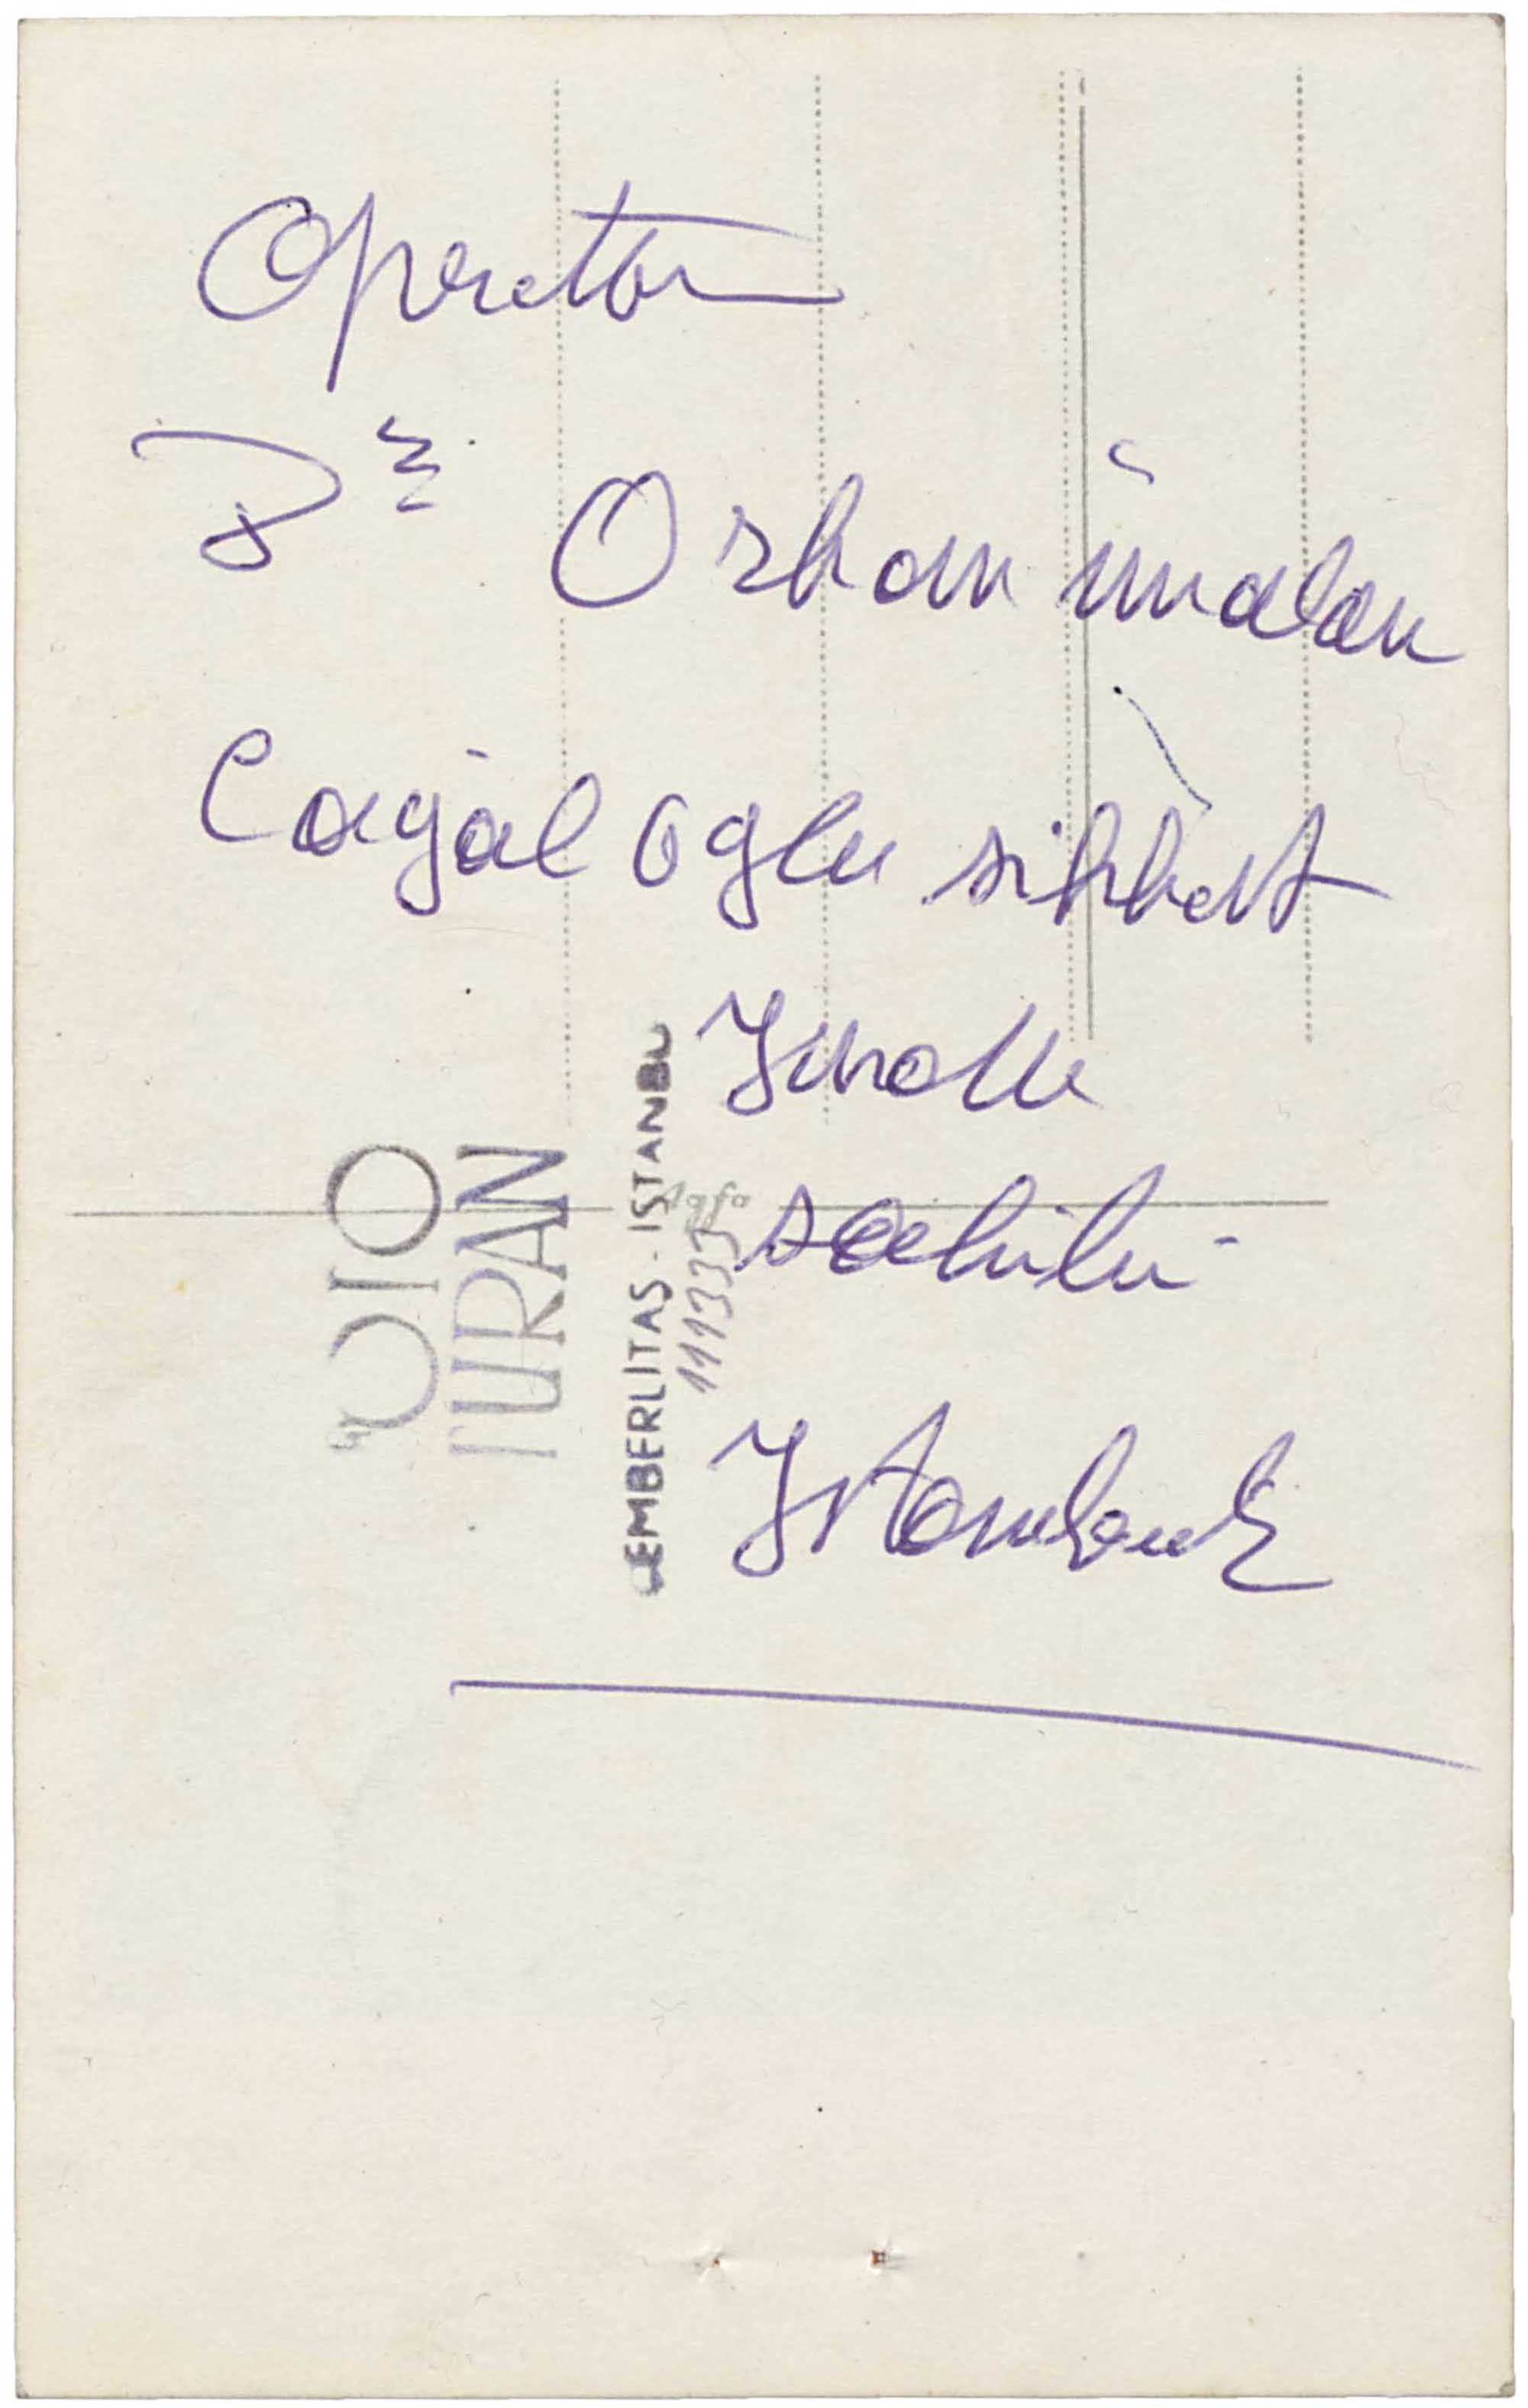 Operatör
Dr. Orhan ünalan
Cagal oglu sihhat
Yurdu
sahibi
Istanbul
TURAN
ÇEMBERLİTAŞ - ISTANBUL
Agfa